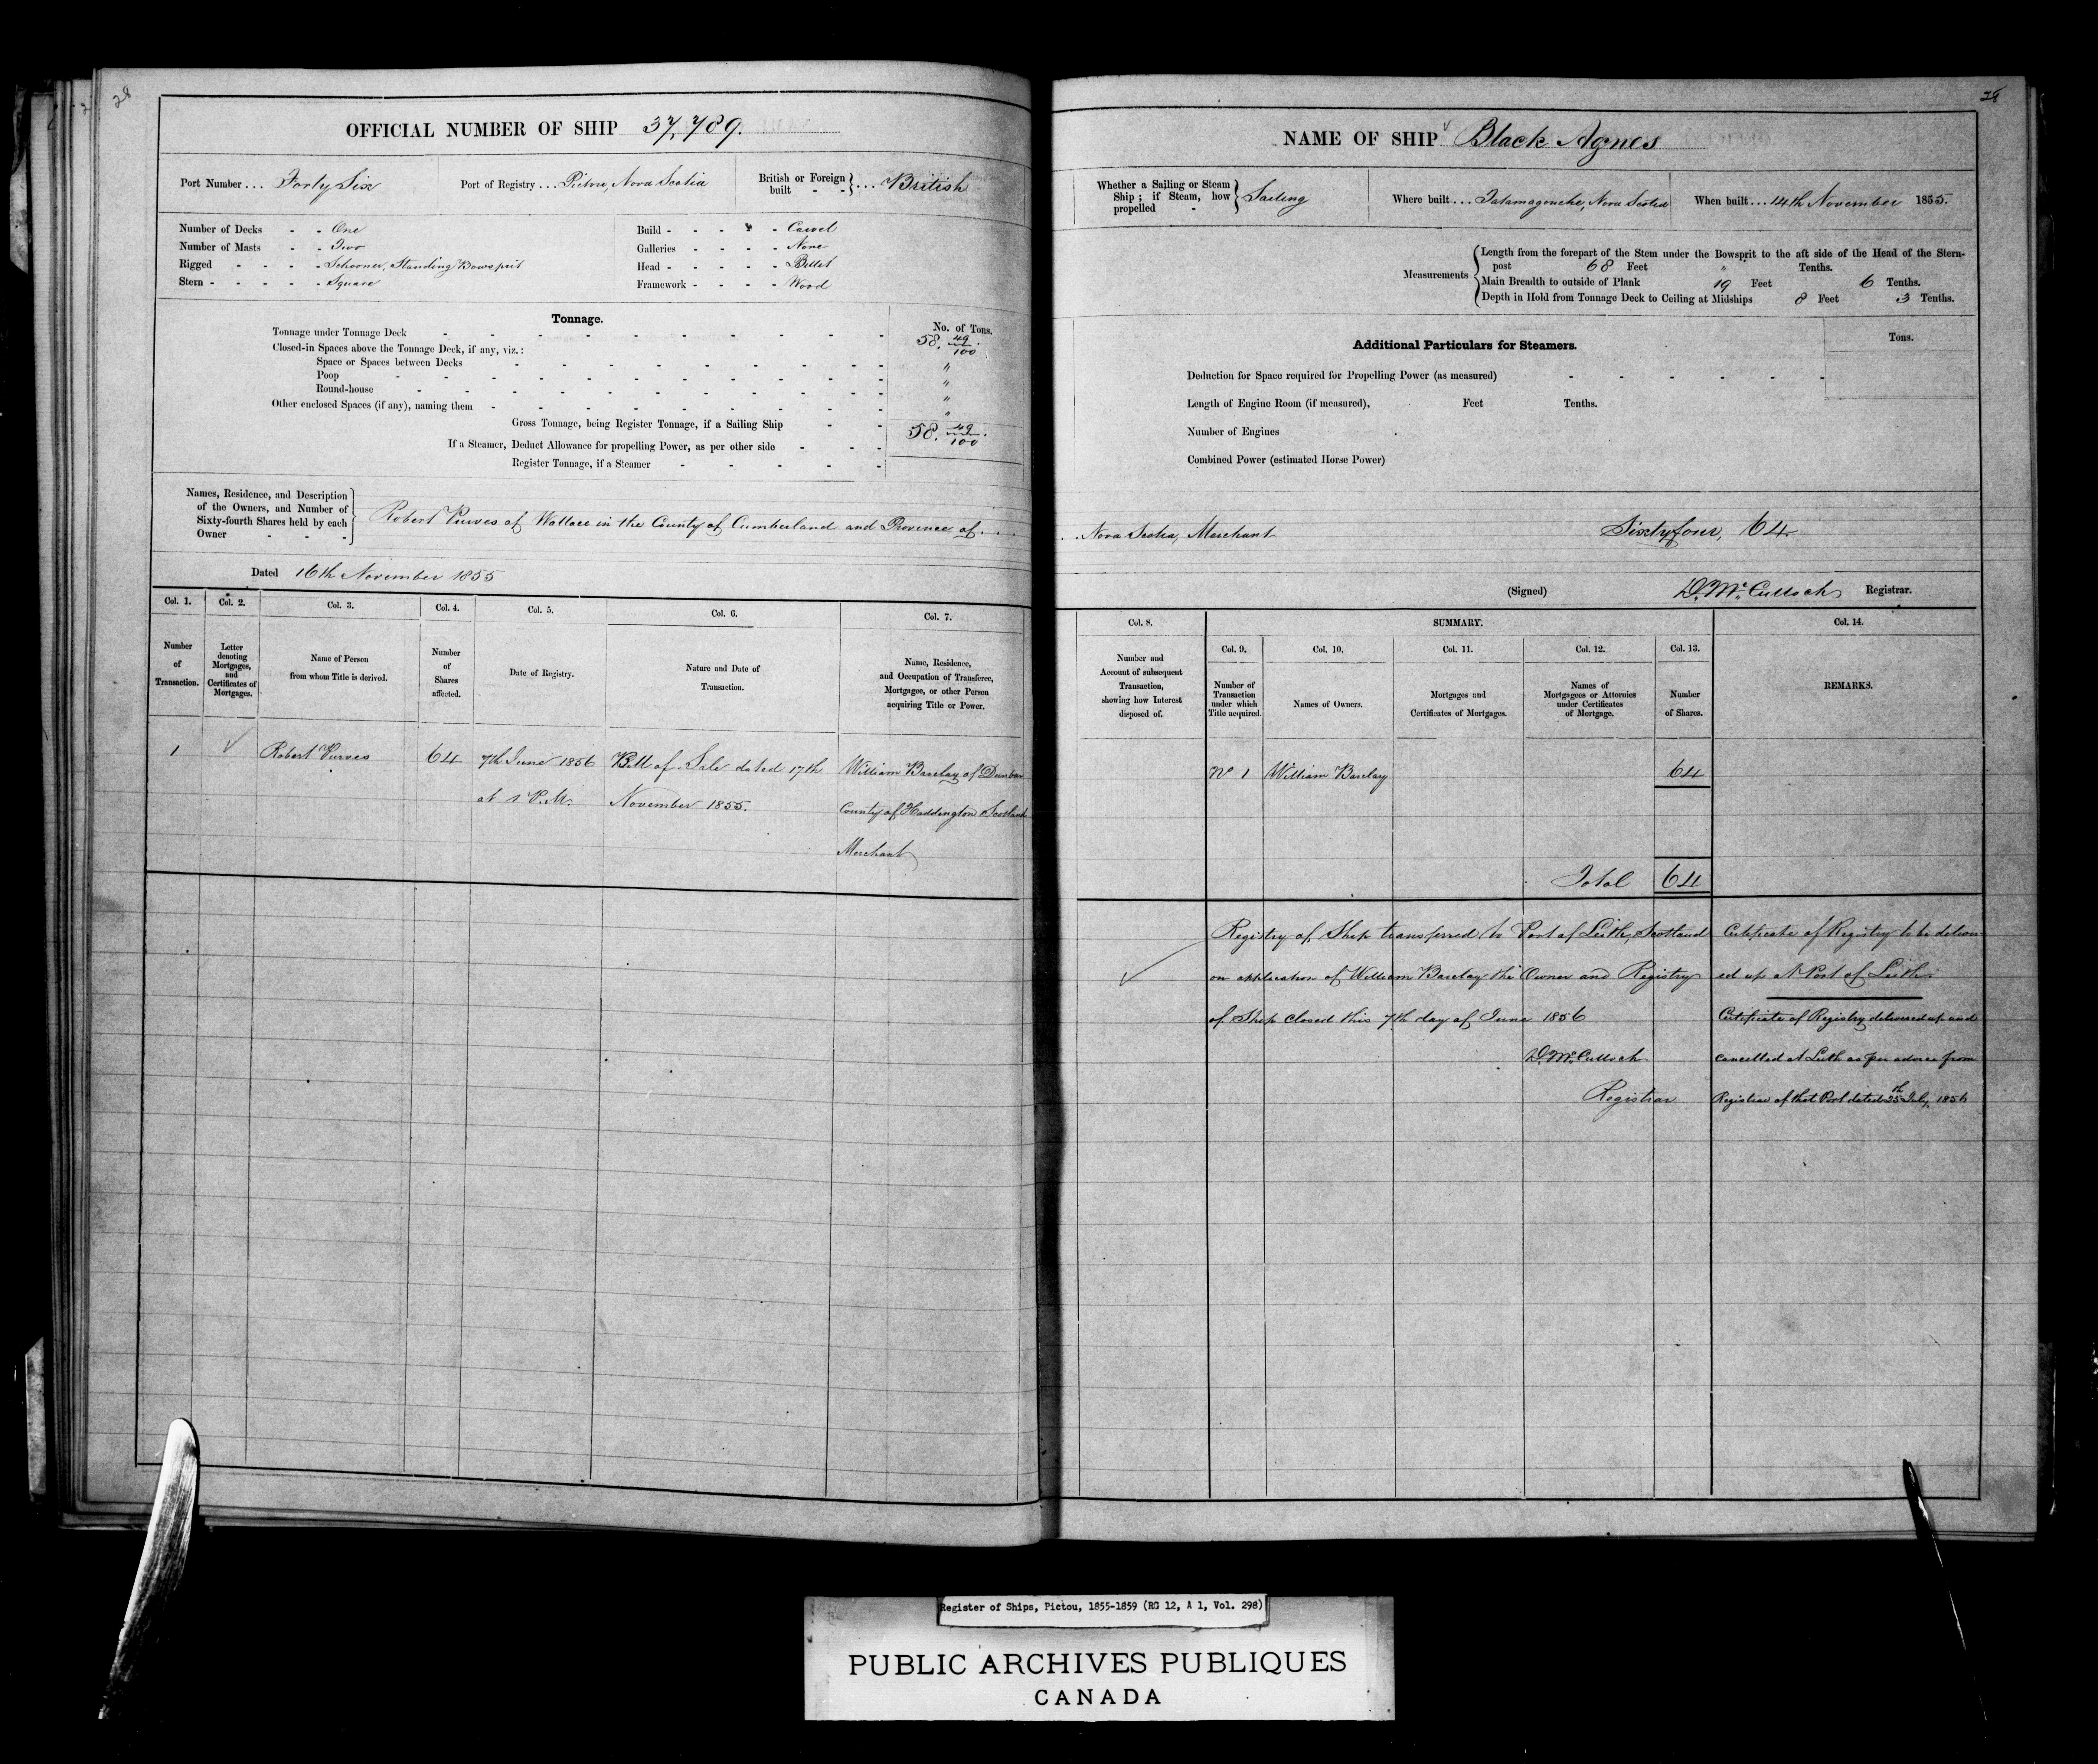 28
28
OFFICIAL NUMBER OF SHIP 37,789.
Port Number ... Forty Six
Port of Registry ... Pictou, Nova Scotia
British or Foreign built - - } ... British
Number of Decks - - One
Number of Masts - - Two
Rigged - - - - Schooner, Standing Bowsprit
Stern - - - - - Square
Build - - - - - Carvel
Galleries - - - - None
Head - - - - - Billet
Framework - - - - Wood
Tonnage.
No. of Tons.
Tonnage under Tonnage Deck - - - - - - - - - - 58. 49/100
Closed-in Spaces above the Tonnage Deck, if any, viz.:
Space or Spaces between Decks - - - - - - - - - "
Poop - - - - - - - - - - - - "
Round-house - - - - - - - - - - - "
Other enclosed Spaces (if any), naming them - - - - - - - - - "
Gross Tonnage, being Register Tonnage, if a Sailing Ship - - 58. 49/100
If a Steamer, Deduct Allowance for propelling Power, as per other side - - -
Register Tonnage, if a Steamer - - - - -
Names, Residence, and Description
of the Owners, and Number of
Sixty-fourth Shares held by each
Owner - - -
Robert Purves of Wallace in the County of Cumberland and Province of ...
Dated 16th November 1855
Col. 1. Col. 2. Col. 3. Col. 4. Col. 5. Col. 6. Col. 7.
Number of Transaction.
Letter denoting Mortgages, and Certificates of Mortgages.
Name of Person from whom Title is derived.
Number of Shares affected.
Date of Registry.
Nature and Date of Transaction.
Name, Residence, and Occupation of Transferee, Mortgagee, or other Person acquiring Title or Power.
1 Robert Purves 64 7th June 1856 Bill of Sale dated 17th William Barclay of Dunbar
at 1 P.M. November 1855. County of Haddington Scotland
Merchant
NAME OF SHIP Black Agnes
Whether a Sailing or Steam
Ship; if Steam, how
propelled -
Sailing
Where built ... Tatamagouche, Nova Scotia
When built ... 14th November 1855.
Measurements
Length from the forepart of the Stem under the Bowsprit to the aft side of the Head of the Stern-
post 68 Feet " Tenths.
Main Breadth to outside of Plank 19 Feet 6 Tenths.
Depth in Hold from Tonnage Deck to Ceiling at Midships 8 Feet 3 Tenths.
Additional Particulars for Steamers.
Tons.
Deduction for Space required for Propelling Power (as measured) - - - - - -
Length of Engine Room (if measured), Feet Tenths.
Number of Engines
Combined Power (estimated Horse Power)
... Nova Scotia, Merchant Sixtyfour, 64
(Signed) D. McCulloch Registrar.
Col. 8. SUMMARY. Col. 14.
Col. 9. Col. 10. Col. 11. Col. 12. Col. 13.
Number and Account of subsequent Transaction, showing how Interest disposed of.
Number of Transaction under which Title acquired.
Names of Owners.
Mortgages and Certificates of Mortgages.
Names of Mortgagees or Attornies under Certificates of Mortgage.
Number of Shares.
REMARKS.
No 1 William Barclay 64
Total 64
Registry of Ship transferred to Port of Leith, Scotland
on application of William Barclay the Owner and Registry
of Ship closed this 7th day of June 1856
D. McCulloch
Registrar
Certificate of Registry to be deliver
ed up at Port of Leith.
Certificate of Registry delivered up and
cancelled at Leith as per advice from
Registrar of that Port dated 25th July, 1856
Register of Ships, Pictou, 1855-1859 (RG 12, A 1, Vol. 298)
PUBLIC ARCHIVES PUBLIQUES
CANADA